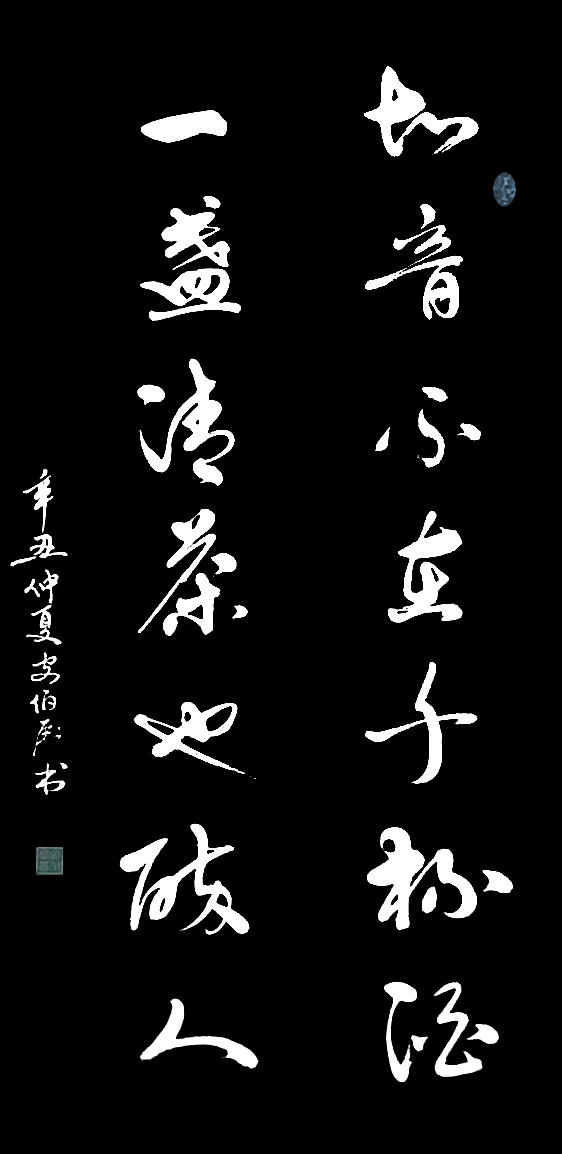 知音不在千杯酒
一盏清茶也醉人
辛丑仲夏安伯殿书